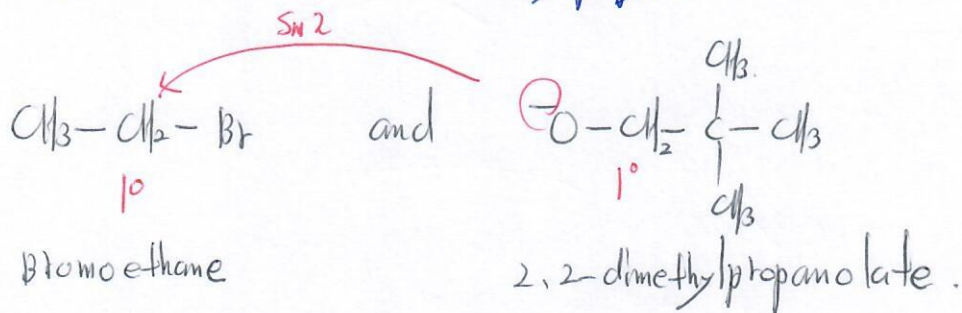 SN2
CH3
CH3-CH2-Br and ⊖O-CH2-C-CH3
1° 1°
CH3
Bromoethane 2,2-dimethylpropanolate.